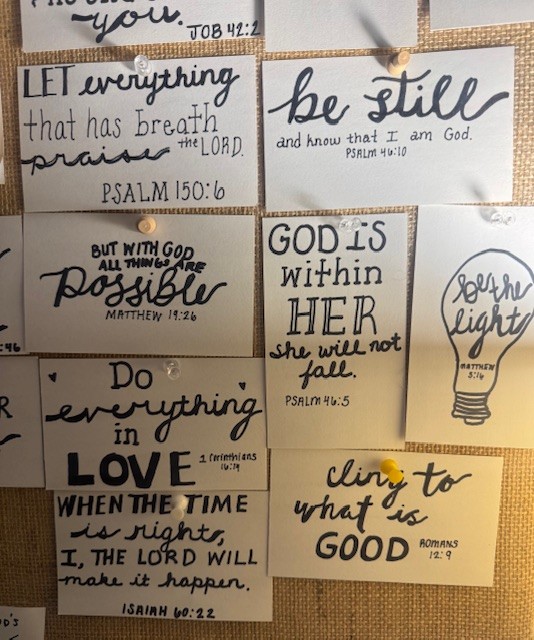 you.
JOB 42:2
LET everything
that has breath
praise the LORD.
PSALM 150:6
be still
and know that I am God.
PSALM 46:10
BUT WITH GOD
ALL THINGS ARE
Possible
MATTHEW 19:26
GOD IS
within
HER
she will not
fall.
PSALM 46:5
be the
light
MATTHEW
5:16
:46
R
Do
everything
in
LOVE
1 Corinthians
16:14
WHEN THE TIME
is right,
I, THE LORD WILL
make it happen.
ISAIAH 60:22
cling to
what is
GOOD
ROMANS
12:9
D'S